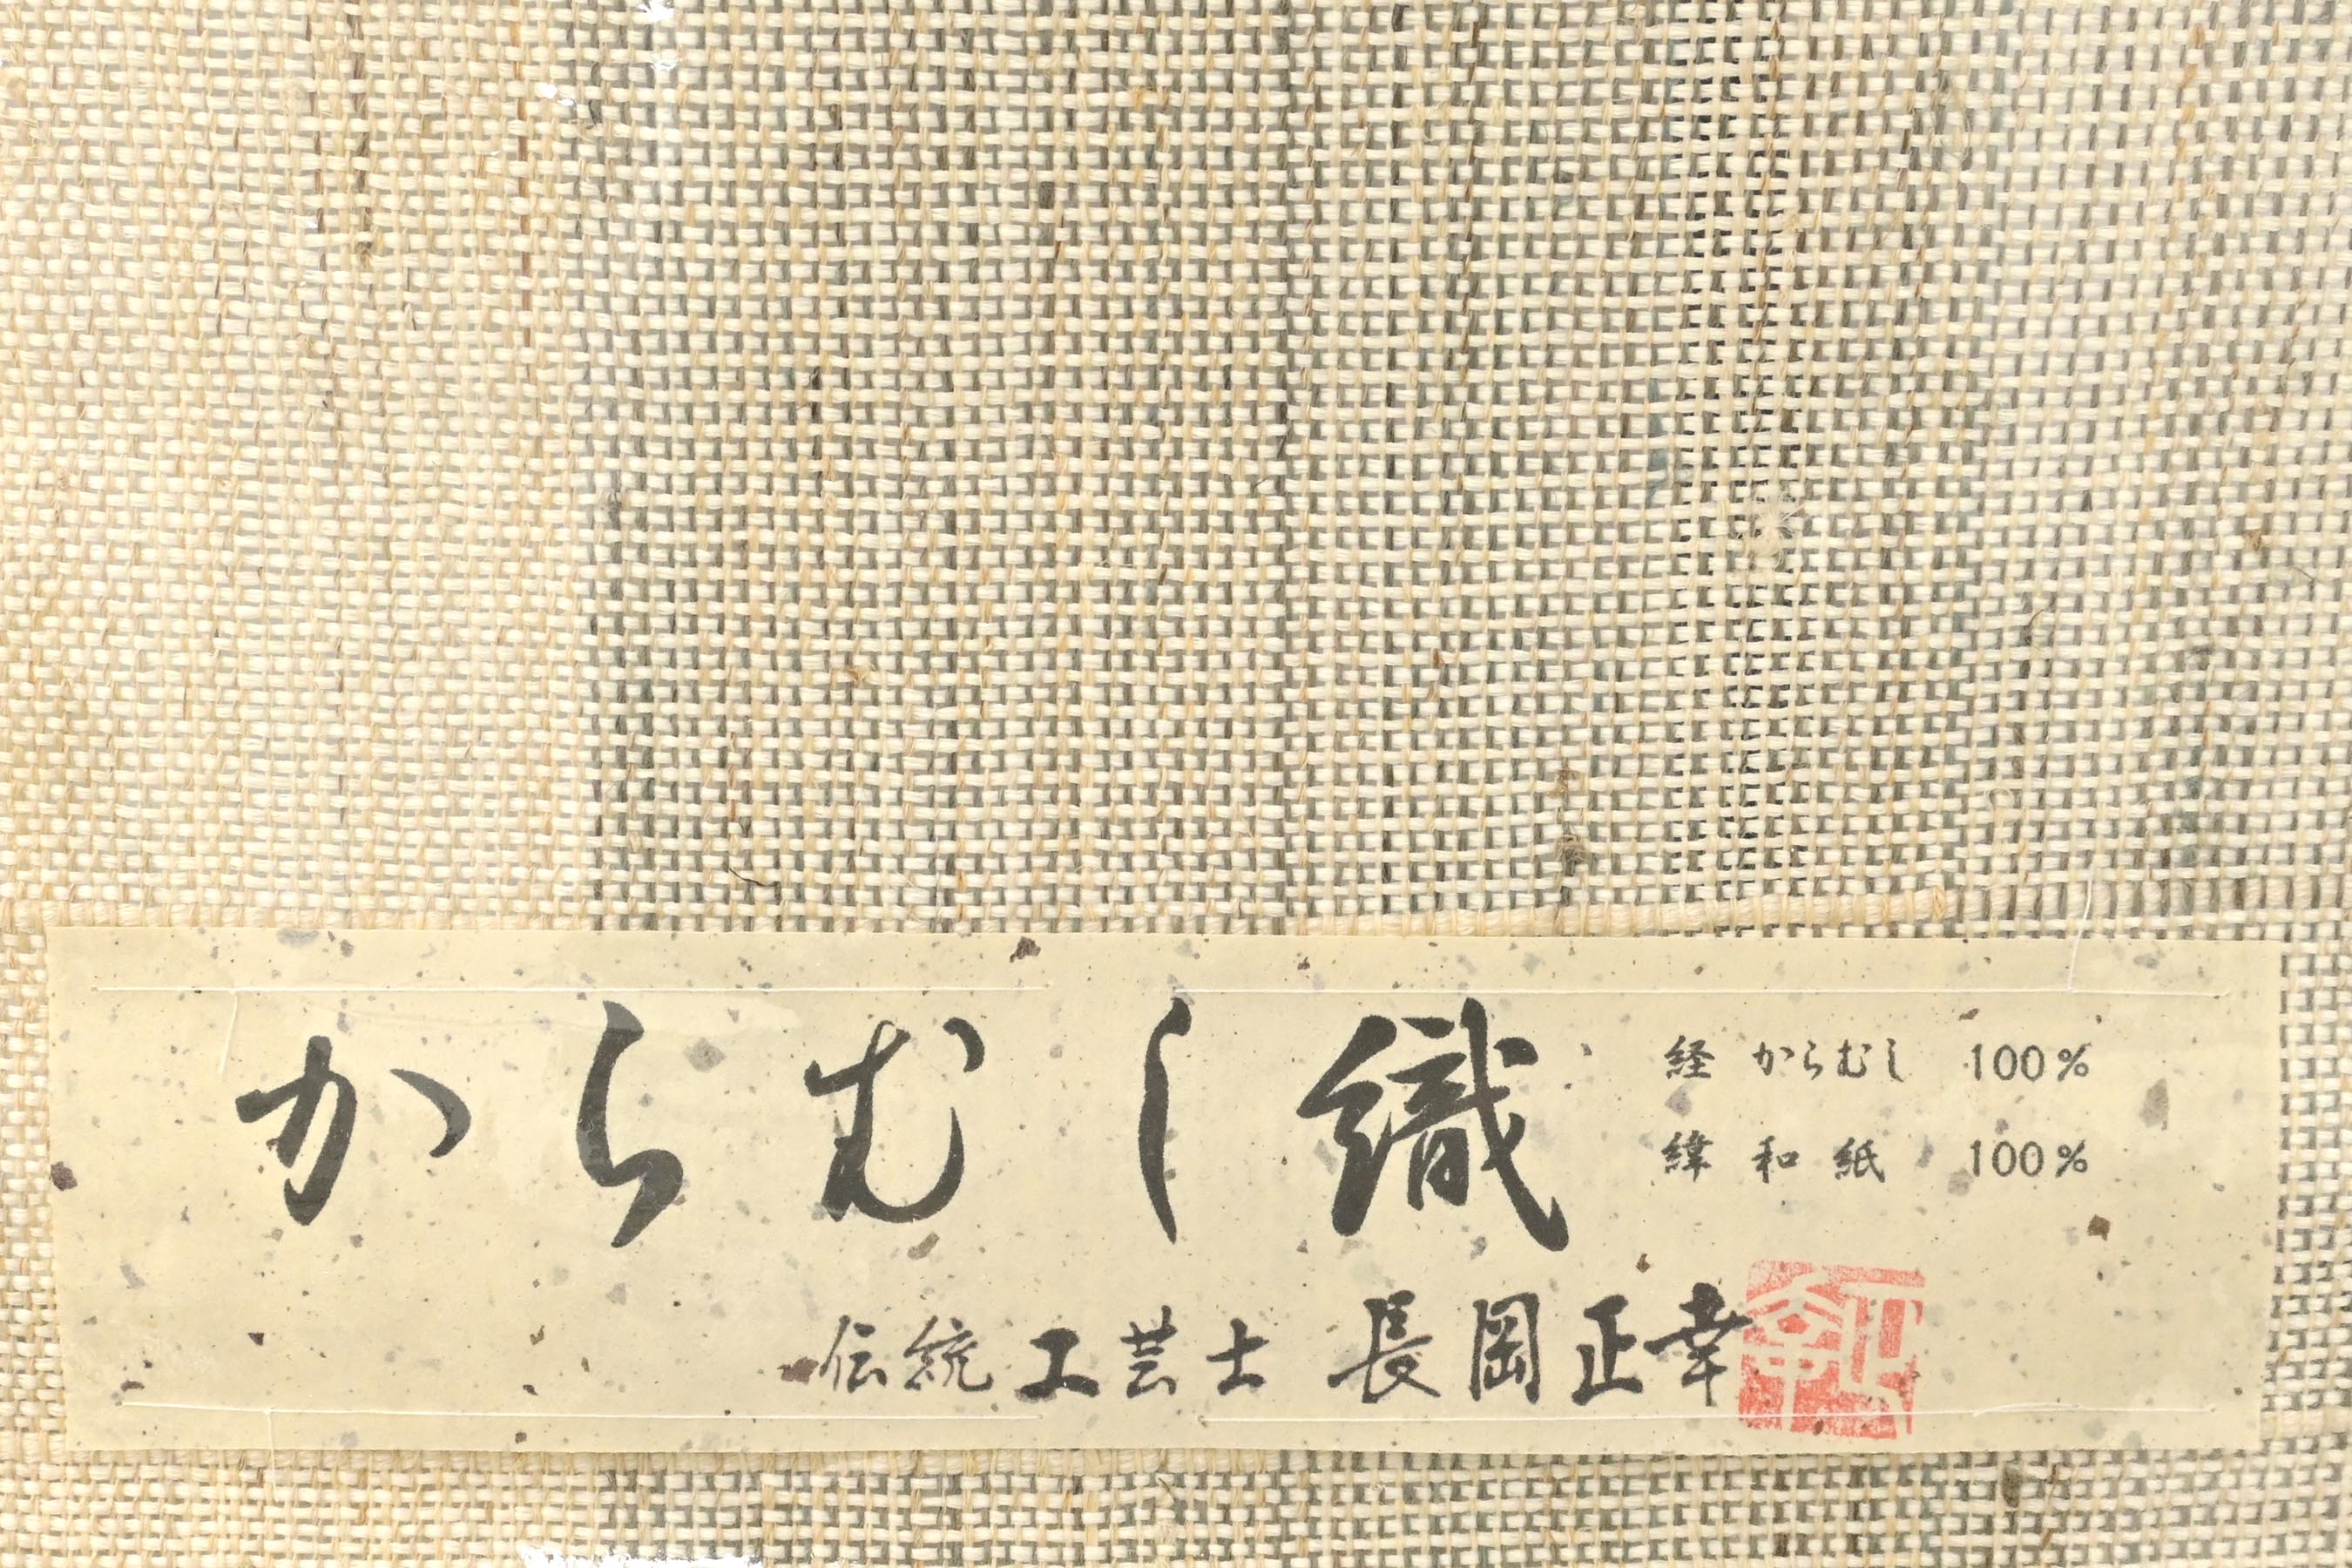 からむし織
経 からむし 100%
緯 和紙 100%
伝統工芸士 長岡正幸
正幸